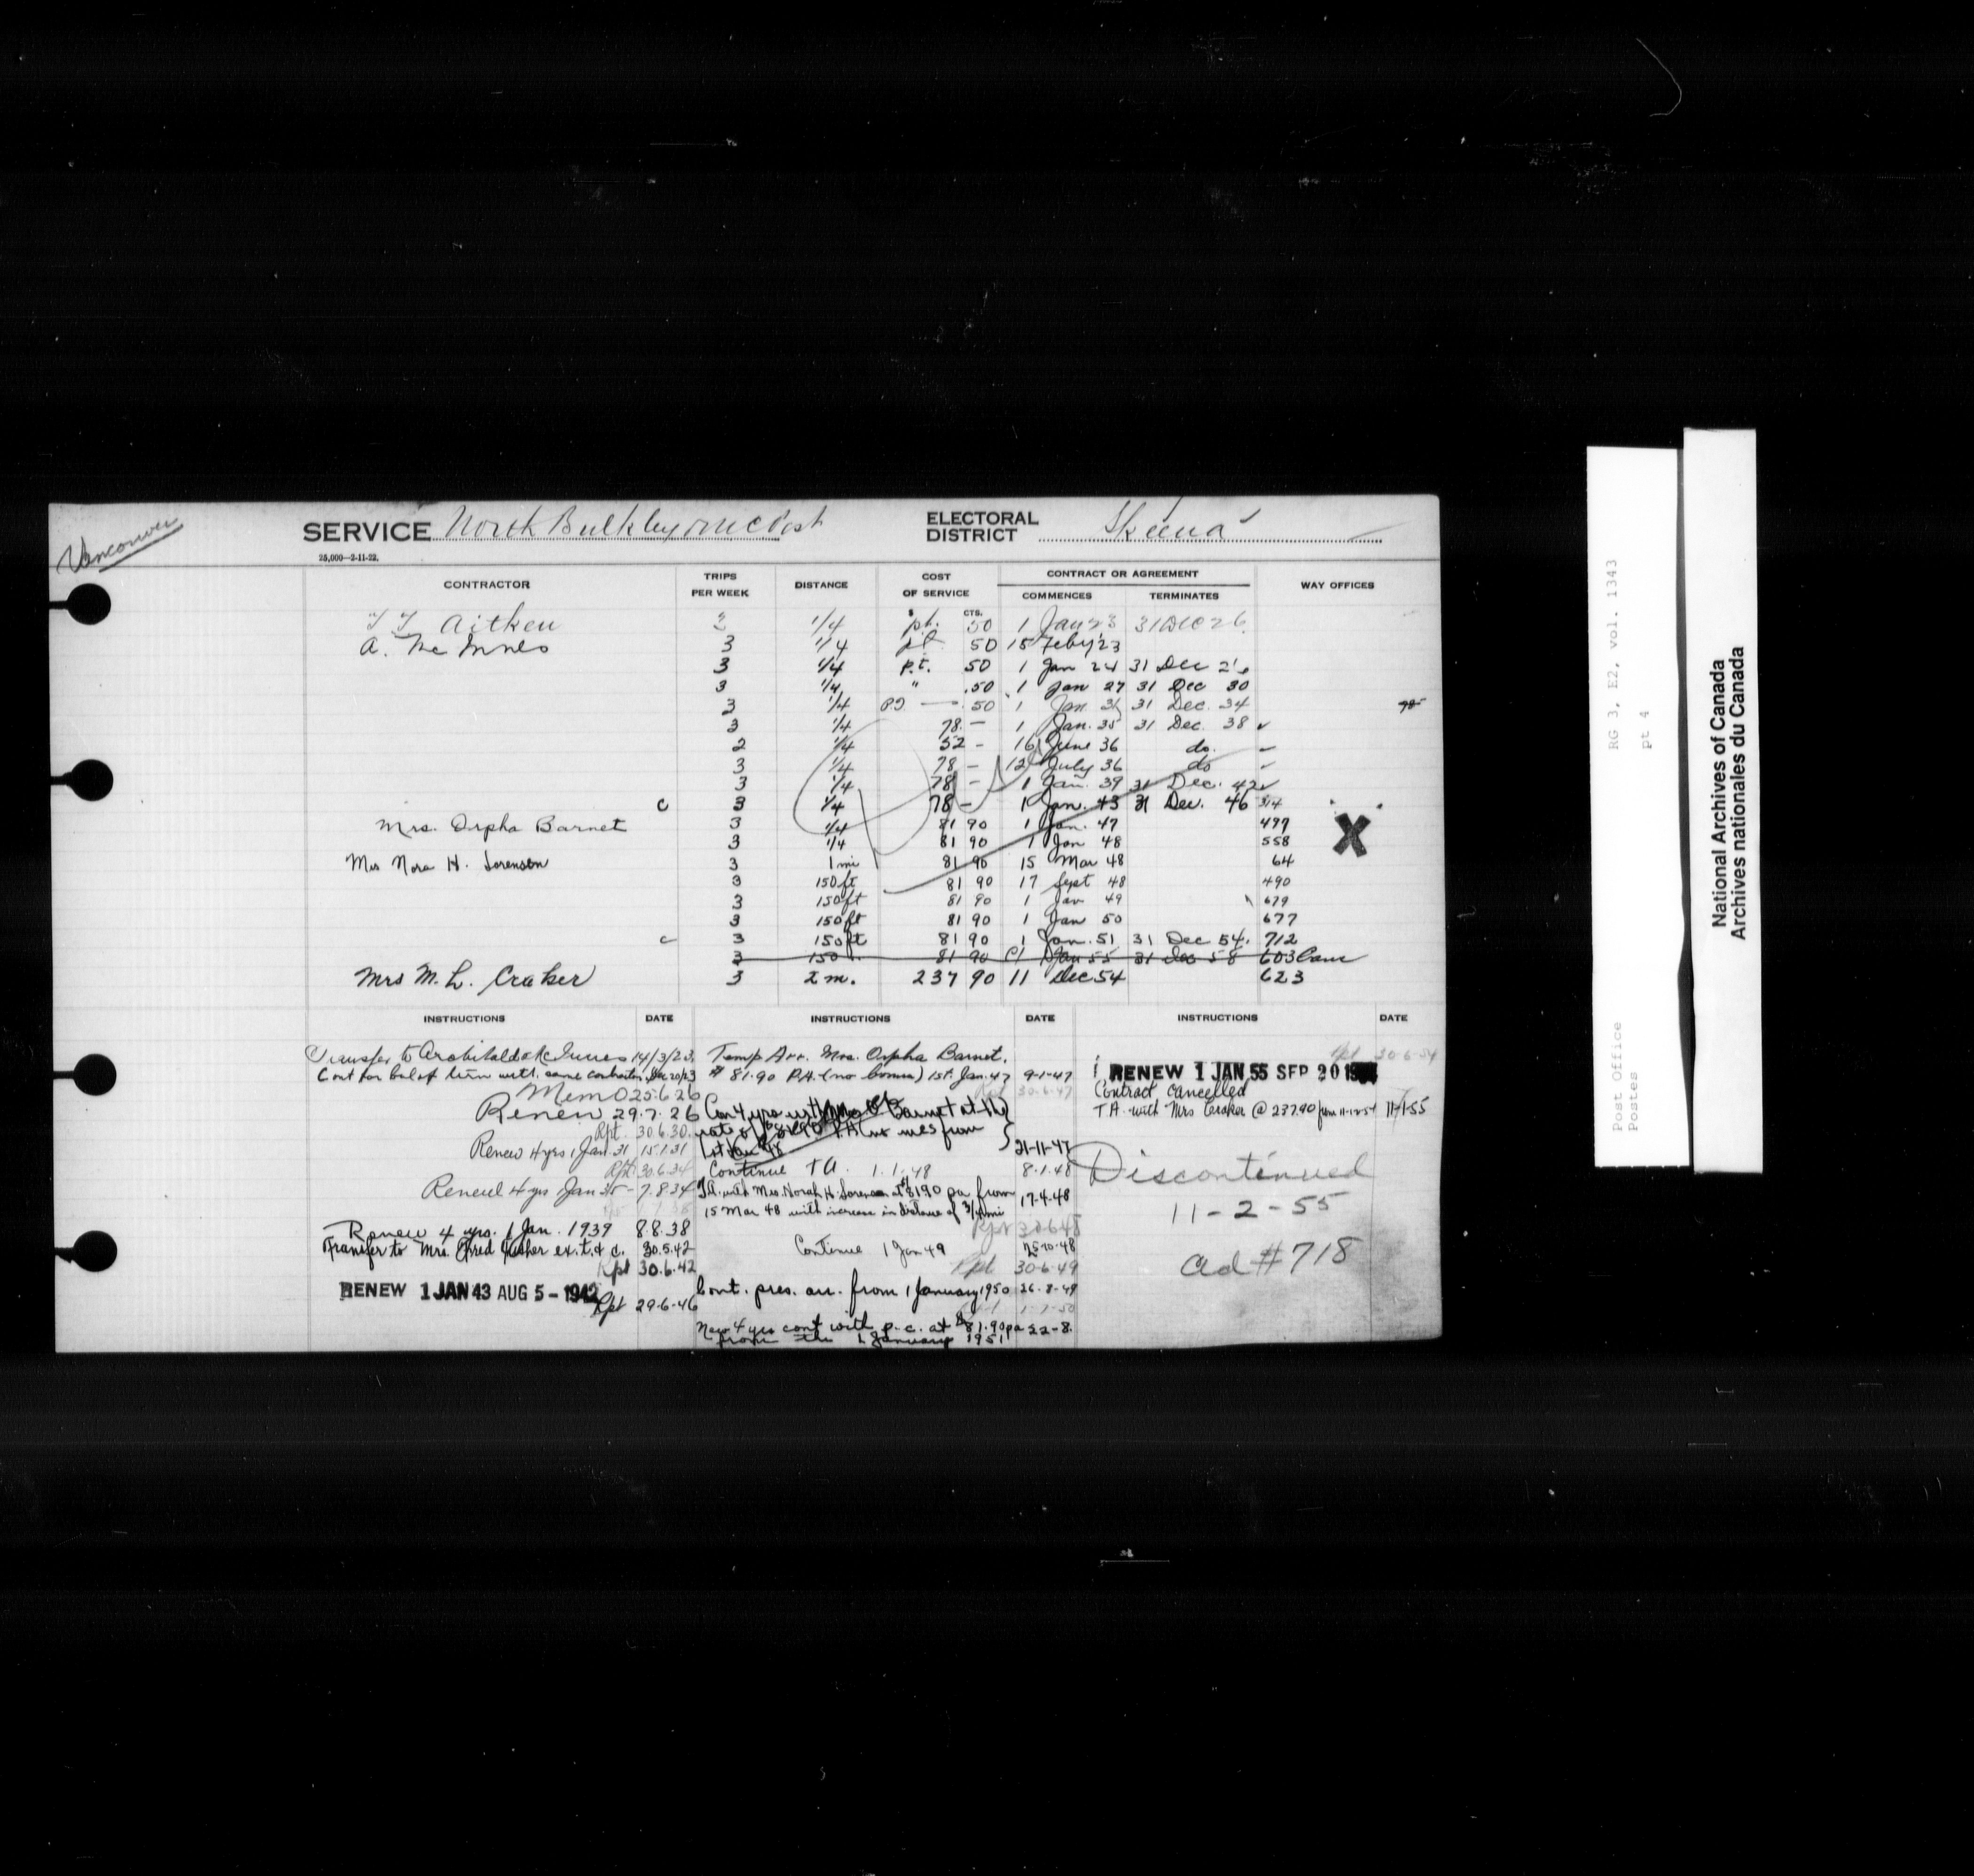 Vancouver
SERVICE North Bulkley
ELECTORAL DISTRICT Skeena
25,000—2-11-22.
CONTRACTOR TRIPS PER WEEK DISTANCE COST OF SERVICE CONTRACT OR AGREEMENT WAY OFFICES
COMMENCES TERMINATES
$ CTS.
Aitken 1/4 pt. 50 1 Jan 23 31 Dec 26
A. McInnes 3 1/4 pt 50 15 Feby '23
3 1/4 p.t. 50 1 Jan 24 31 Dec
3 1/4 " .50 1 Jan 27 31 Dec 30
3 1/4 50 1 Jan 31 31 Dec. 34
3 1/4 78 — 1 Jan. 35 31 Dec. 38 ✓
2 1/4 52 - 16 June 36 do.
3 1/4 78 — 12 July 36 do
3 1/4 78 — 1 Jan. 39 31 Dec. 42 ✓
C 3 1/4 78 — 1 Jan. 43 31 Dec. 46 314
Mrs. Orpha Barnet 3 1/4 81 90 1 Jan. 47 499
3 1/4 81 90 1 Jan 48 558
X
Mrs Nora H. Sorenson 3 1 mi 81 90 15 Mar 48 64
3 150 ft 81 90 17 Sept 48 490
3 150 ft 81 90 1 Jan 49 679
3 150 ft 81 90 1 Jan 50 677
C 3 150 ft 81 90 1 Jan. 51 31 Dec 54. 712
3 150 81 90 C1 Jan 55 31 Dec 58 603 Canc
Mrs M. L. Craker 3 2 m. 237 90 11 Dec 54 623
INSTRUCTIONS DATE INSTRUCTIONS DATE INSTRUCTIONS DATE
Transfer to Archibald McInnes 14/3/23.
Cont for bal of term with same contractor Dec 20/23
Memo 25.6.26
Renew 29.7.26
Rpt. 30.6.30.
Renew 4 yrs 1 Jan. 31 15.1.31
Rpt 30.6.34
Renew 4 yrs Jan 35 - 7.8.34
Renew 4 yrs. 1 Jan. 1939 8.8.38
Transfer to Mrs. 30.5.42
Rpt 30.6.42
RENEW 1 JAN 43 AUG 5 - 1942
Rpt 29-6-46
Temp Arr. Mrs. Orpha Barnet.
$ 81.90 P.A. (no bonus) 1st. Jan. 47 9-1-47
Rpt 30.6.47
Con 4 yrs with Mrs O Barnet at the
rate of $81.90 P.A. from
1st Jan 48 21-11-47
Continue T A. 1.1.48 8.1.48
T.A. with Mrs. Norah H. Sorenson at $8190 pa from
15 Mar 48 with increase in distance of 3/4 mi 17-4-48
Rpt 30648
Continue 1 Jan 49 -10-48
Rpt 30-6-49
Cont. pres. arr. from 1 January 1950 26-8-49
Rpt 1-7-50
New 4 yrs cont with p.c. at $81.90 pa 22-8.
from the 1 January 1951
Rpt 30-6-54
RENEW 1 JAN 55 SEP 20
Contract cancelled
T A with Mrs Craker @ 237.90 from 11-12-54 11-1-55
Discontinued
11-2-55
ad #718
RG 3, E2, vol. 1343
pt 4
Post Office
Postes
National Archives of Canada
Archives nationales du Canada